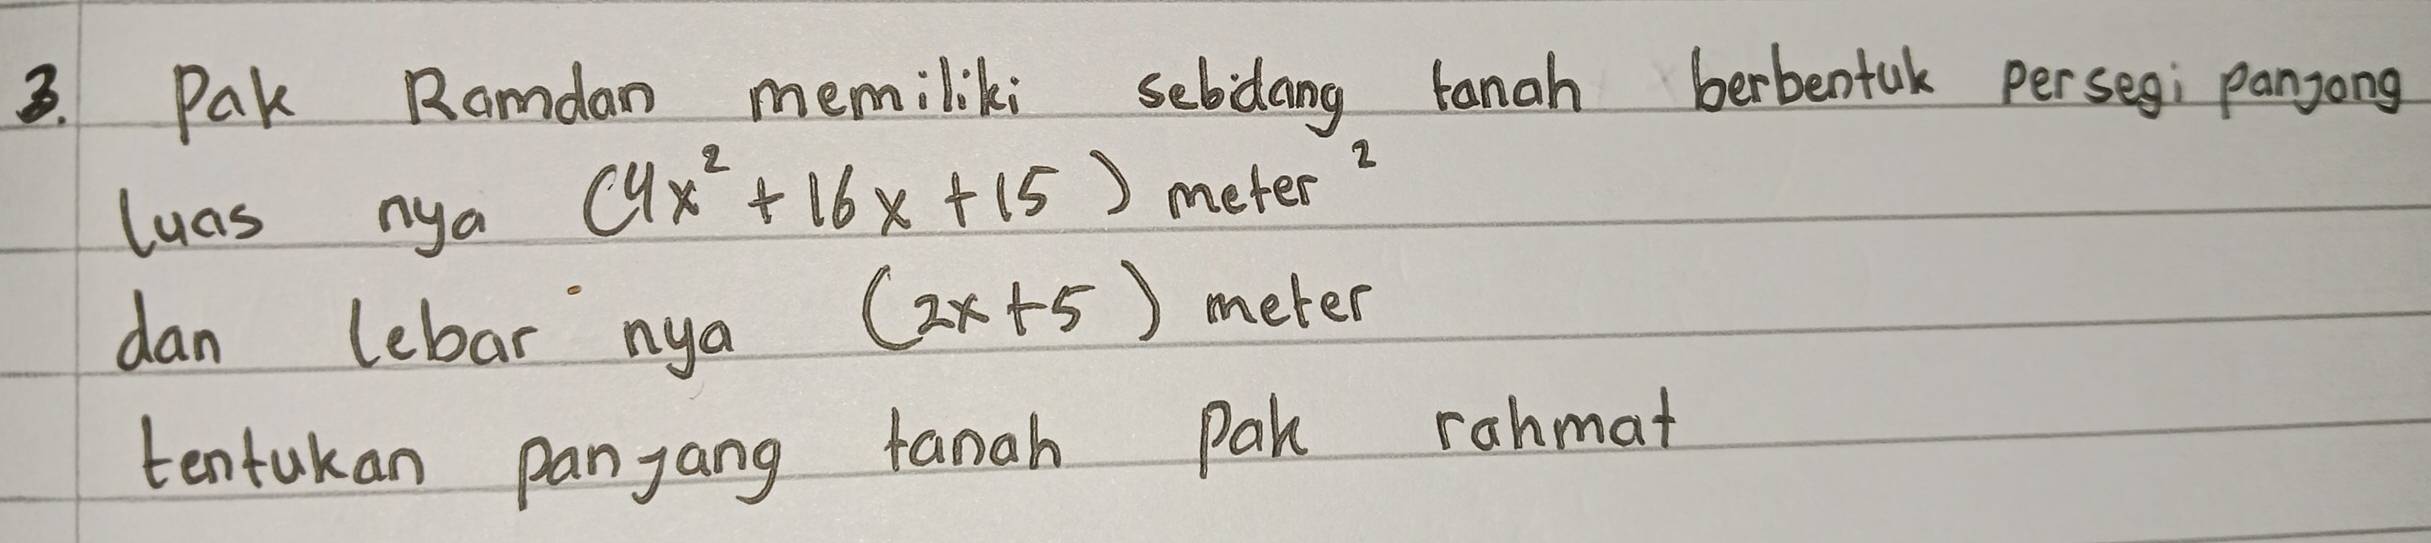 3. Pak Ramdan memiliki sebidang tanah berbentuk persegi panjang
luas nya (4x² + 16x + 15) meter²
dan lebar nya (2x+5) meter
tentukan panjang tanah Pak rahmat